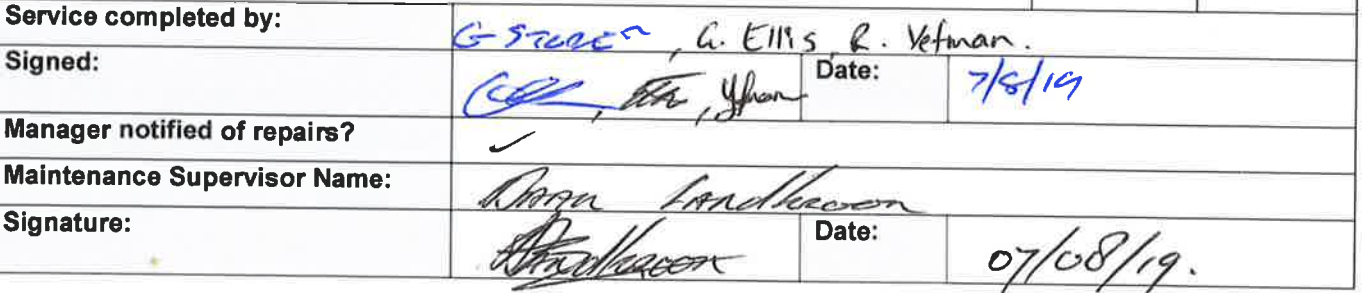 Service completed by: G STORER, G. Ellis, R. Yefman.
Signed: Date: 7/8/19
Manager notified of repairs? ✓
Maintenance Supervisor Name: Daan Landkroon
Signature: Date: 07/08/19.